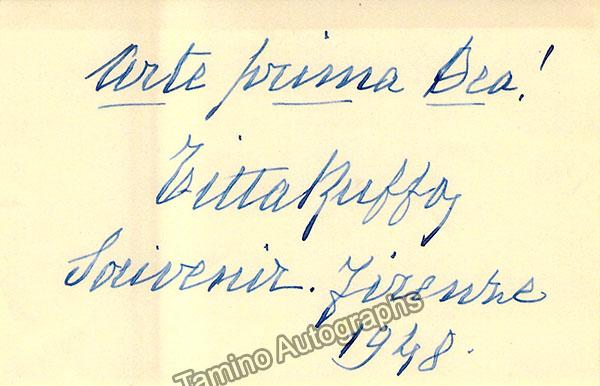 Arte prima Dea!
Titta Ruffo,
Souvenir. Firenze
1948.
Tamino Autographs